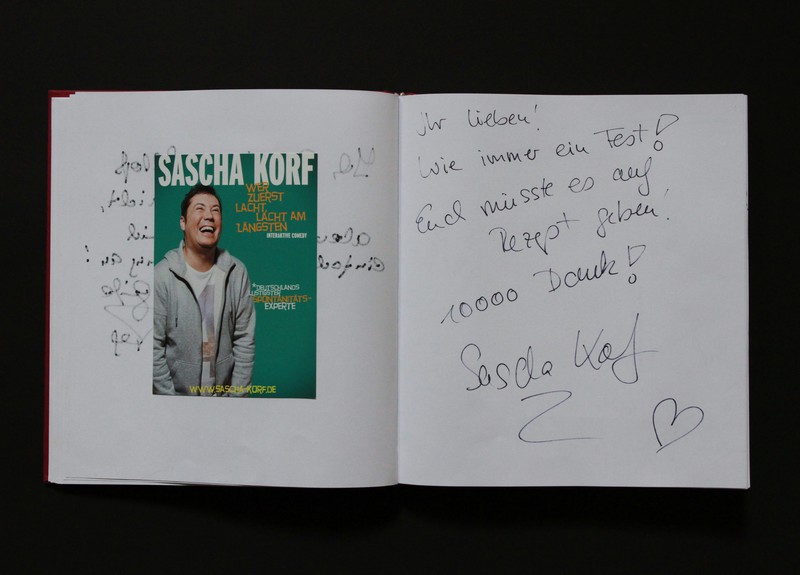 SASCHA KORF
WER
ZUERST
LACHT,
LACHT AM
LÄNGSTEN
INTERAKTIVE COMEDY
DEUTSCHLANDS
LUSTIGSTER
SPONTANITÄTS-
EXPERTE
WWW.SASCHA-KORF.DE
Ihr Lieben!
Wie immer ein Fest!
Euch müsste es auf
Rezept geben!
10000 Dank!
Sascha Korf